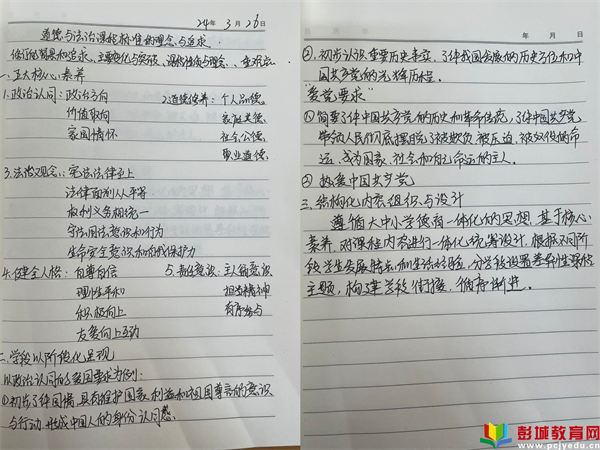 24年 3月 26日
道德与法治课程标准的理念与追求
修订的背景和追求、主要变化与突破、课程性质与理念、
一、五大核心素养
1.政治认同：政治方向 2.道德修养：个人品德
价值取向 家庭美德
家国情怀 社会公德
职业道德
3.法治观念：宪法法律至上
法律面前人人平等
权利义务相统一
守法用法意识和行为
生命安全意识和自我保护力
4.健全人格：自尊自信 5.责任意识：主人翁意识
理性平和 担当精神
积极向上 有序参与
友爱向上互动
二、学段以阶梯化呈现
以政治认同的爱国要求为例：
①初步了解国情，具有维护国家利益和祖国尊严的意识
与行动，形成中国人的身份认同感。
年 月 日
②初步认识重要历史事实，了解我国发展的历史方位和中
国共产党的光辉历程。
"爱党要求"
①简要了解中国共产党的历史和革命传统，了解中国共产党
带领人民彻底摆脱了被欺负、被压迫、被奴役的命
运，成为国家、社会和自己命运的主人。
②热爱中国共产党
三、结构化内容组织与设计
遵循大中小学德育一体化的思想，基于核心
素养，对课程内容进行一体化统筹设计，根据不同阶
段学生发展特点和生活经验，分学段设置差异性课程
主题，构建学段衔接，循序渐进。
彭城教育网
www.pcjyedu.cn